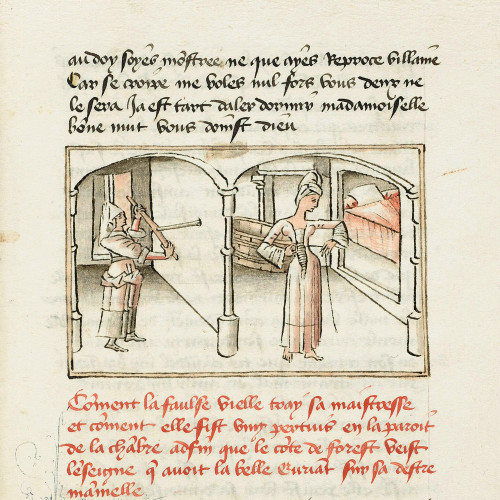 au doy soyes mõstree ne que ayes Reproce villaine
Car se croire me voles nul fors vous deux ne
le sera Ja est tart daler dormir madamoiselle
bõne nuit vous doinst dieu
Cõment la faulse vielle tray sa maistresse
et cõment elle fist vng pertuis en la paroit
de la chãbre adfin que le cõte de forest veist
le seigne q̃ auoit la belle Euriat sur sa destre
mamelle